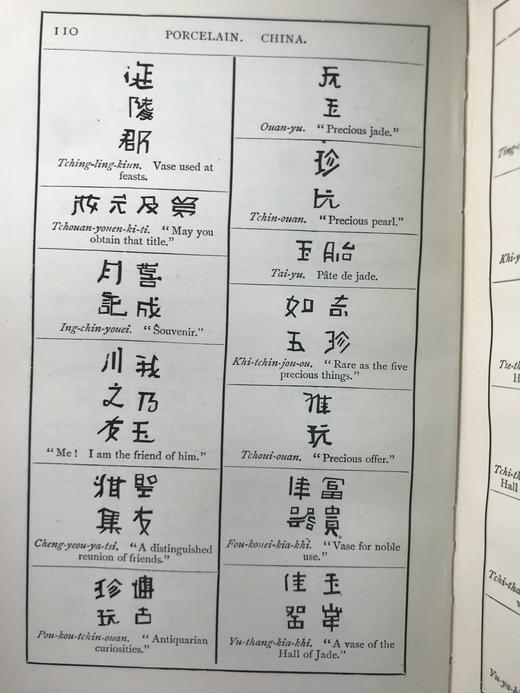 110
PORCELAIN. CHINA.
陵
郡
Tching-ling-kiun. Vase used at
feasts.
元及第
Tchouan-youen-ki-ti. "May you
obtain that title."
月
記 成
Ing-chin-youei. "Souvenir."
川 我
之 乃
友 玉
"Me! I am the friend of him."
雅 聖
集 友
Cheng-yeou-ya-tsi. "A distinguished
reunion of friends."
珍 博
玩 古
Pou-kou-tchin-ouan. "Antiquarian
curiosities."
玩
玉
Ouan-yu. "Precious jade."
珍
玩
Tchin-ouan. "Precious pearl."
玉
Tai-yu. Pâte de jade.
如 奇
五 珍
Khi-tchin-jou-ou. "Rare as the five
precious things."
玩
Tchoui-ouan. "Precious offer."
佳 富
器 貴
Fou-kouei-kia-khi. "Vase for noble
use."
佳 玉
器 堂
Yu-thang-kia-khi. "A vase of the
Hall of Jade."